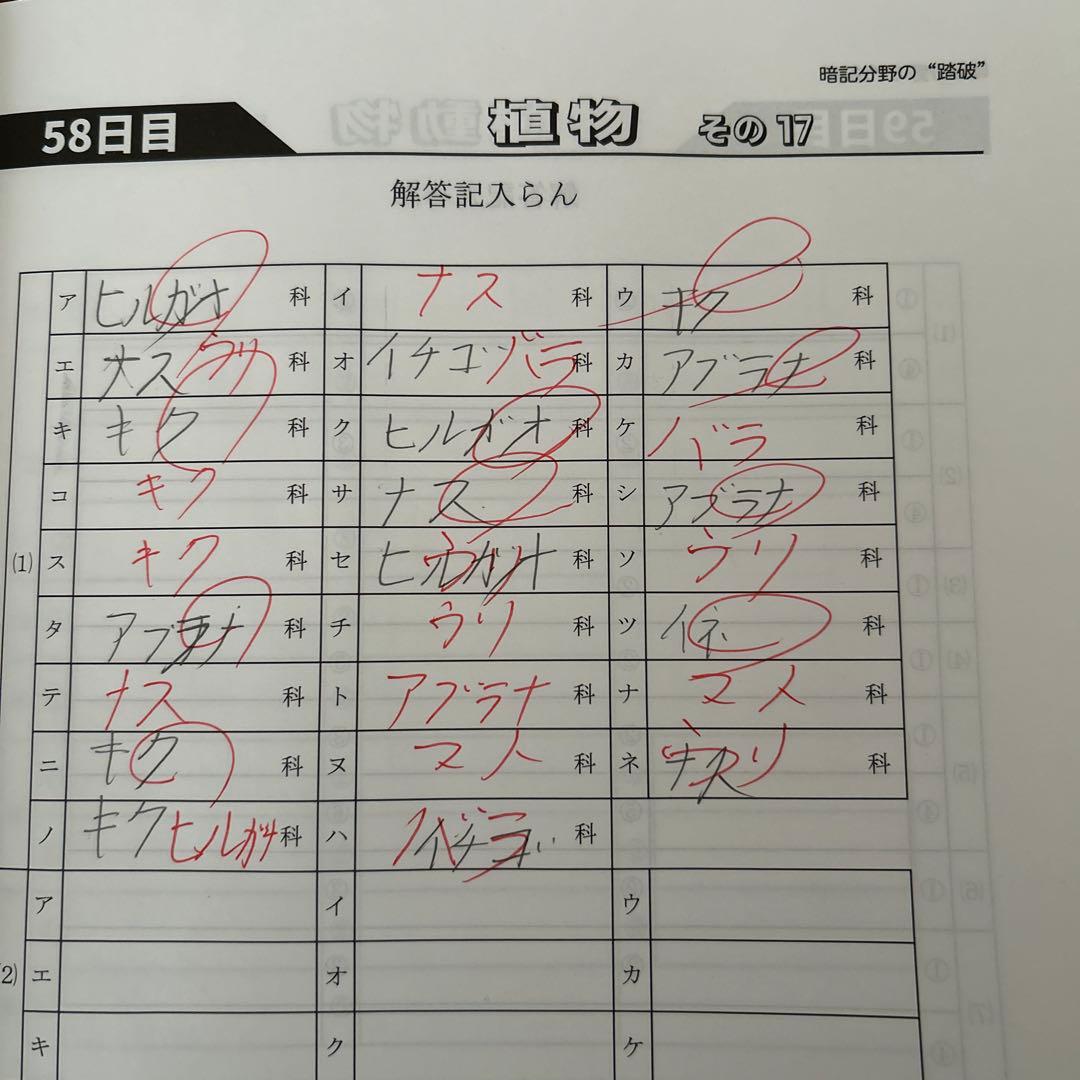 暗記分野の“踏破”
58日目 植物 その17
解答記入らん
(1) ア ヒルガオ 科 イ ナス 科 ウ キク 科
エ ナス ウリ 科 オ イチゴ バラ 科 カ アブラナ 科
キ キク 科 ク ヒルガオ 科 ケ バラ 科
コ キク 科 サ ナス 科 シ アブラナ 科
ス キク 科 セ ヒルガオ ウリ 科 ソ ウリ 科
タ アブラナ 科 チ ウリ 科 ツ イネ 科
テ ナス 科 ト アブラナ 科 ナ マメ 科
ニ キク 科 ヌ マメ 科 ネ ウリ 科
ノ キク ヒルガオ 科 ハ イチゴ バラ 科
(2) ア イ ウ
エ オ カ
キ ク ケ